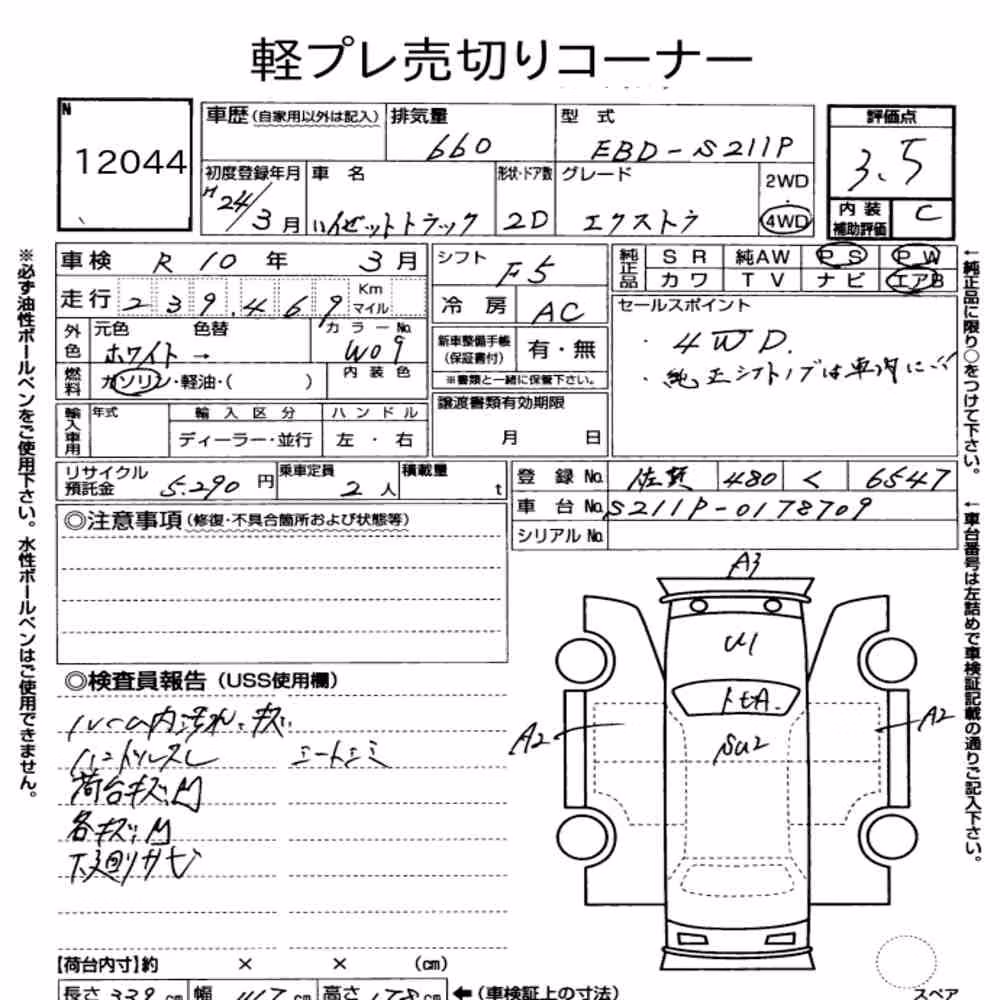 軽プレ売切りコーナー
N
12044
車歴 (自家用以外は記入) 排気量 660 型式 EBD-S211P
評価点 3.5
初度登録年月 H24/3月 車名 ハイゼットトラック 形状・ドア数 2D グレード エクストラ 2WD 4WD
内装補助評価 C
車検 R 10年 3月 シフト F5
走行 239,469 Km マイル 冷房 AC
純正品 SR 純AW PS PW
カワ TV ナビ エアB
外色 元色 ホワイト → 色替 カラーNo. W09
新車整備手帳(保証書付) 有・無
※書類と一緒に保管下さい。
セールスポイント
・4WD.
燃料 ガソリン・軽油・( ) 内装色
輸入車用 年式 輸入区分 ハンドル
ディーラー・並行 左・右
譲渡書類有効期限
月 日
リサイクル預託金 5,290円 乗車定員 2人 積載量 t
登録No. 佐賀 480 く 6547
車台No. S211P-0178709
シリアルNo.
◎注意事項 (修復・不具合箇所および状態等)
◎検査員報告 (USS使用欄)
ハンドルスレ
荷台キズM
各キズM
下廻りサビ
A3
U1
A2
SU2
A2
【荷台内寸】約 × × (cm)
長さ 339 cm 幅 147 cm 高さ 178 cm ←(車検証上の寸法)
スペア
※必ず油性ボールペンをご使用下さい。水性ボールペンはご使用できません。
←純正品に限り○をつけて下さい。
←車台番号は左詰めで車検証記載の通りご記入下さい。